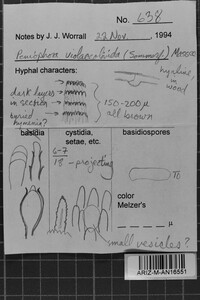 No. 638
Notes by J. J. Worrall 22 Nov. , 1994
Peniophora violaceolivida (Sommerf.) Massee
Hyphal characters:
hyaline, in wood
dark layers in section
buried hymenia?
150-200µ
all brown
basidia
cystidia, setae, etc.
basidiospores
6-7
18 - projecting
color
Melzer's
µ
small vesicles?
ARIZ-M-AN16551